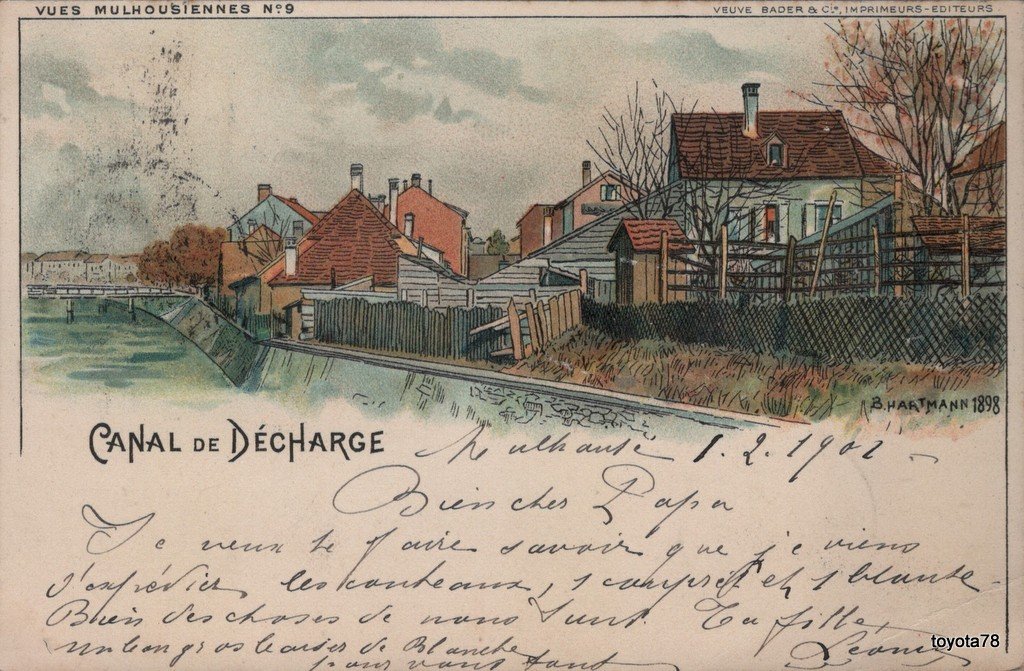 VUES MULHOUSIENNES Nº 9
VEUVE BADER & Cie, IMPRIMEURS-EDITEURS
B. HARTMANN 1898
CANAL DE DÉCHARGE
Mulhouse 1.2.1902
Bien cher Papa
Je veux te faire savoir que je viens
d'expédier les couteaux, 1 et 1
Bien des choses de nous Ta fille,
un bon gros baiser de Blanche
pour vous tous
toyota78